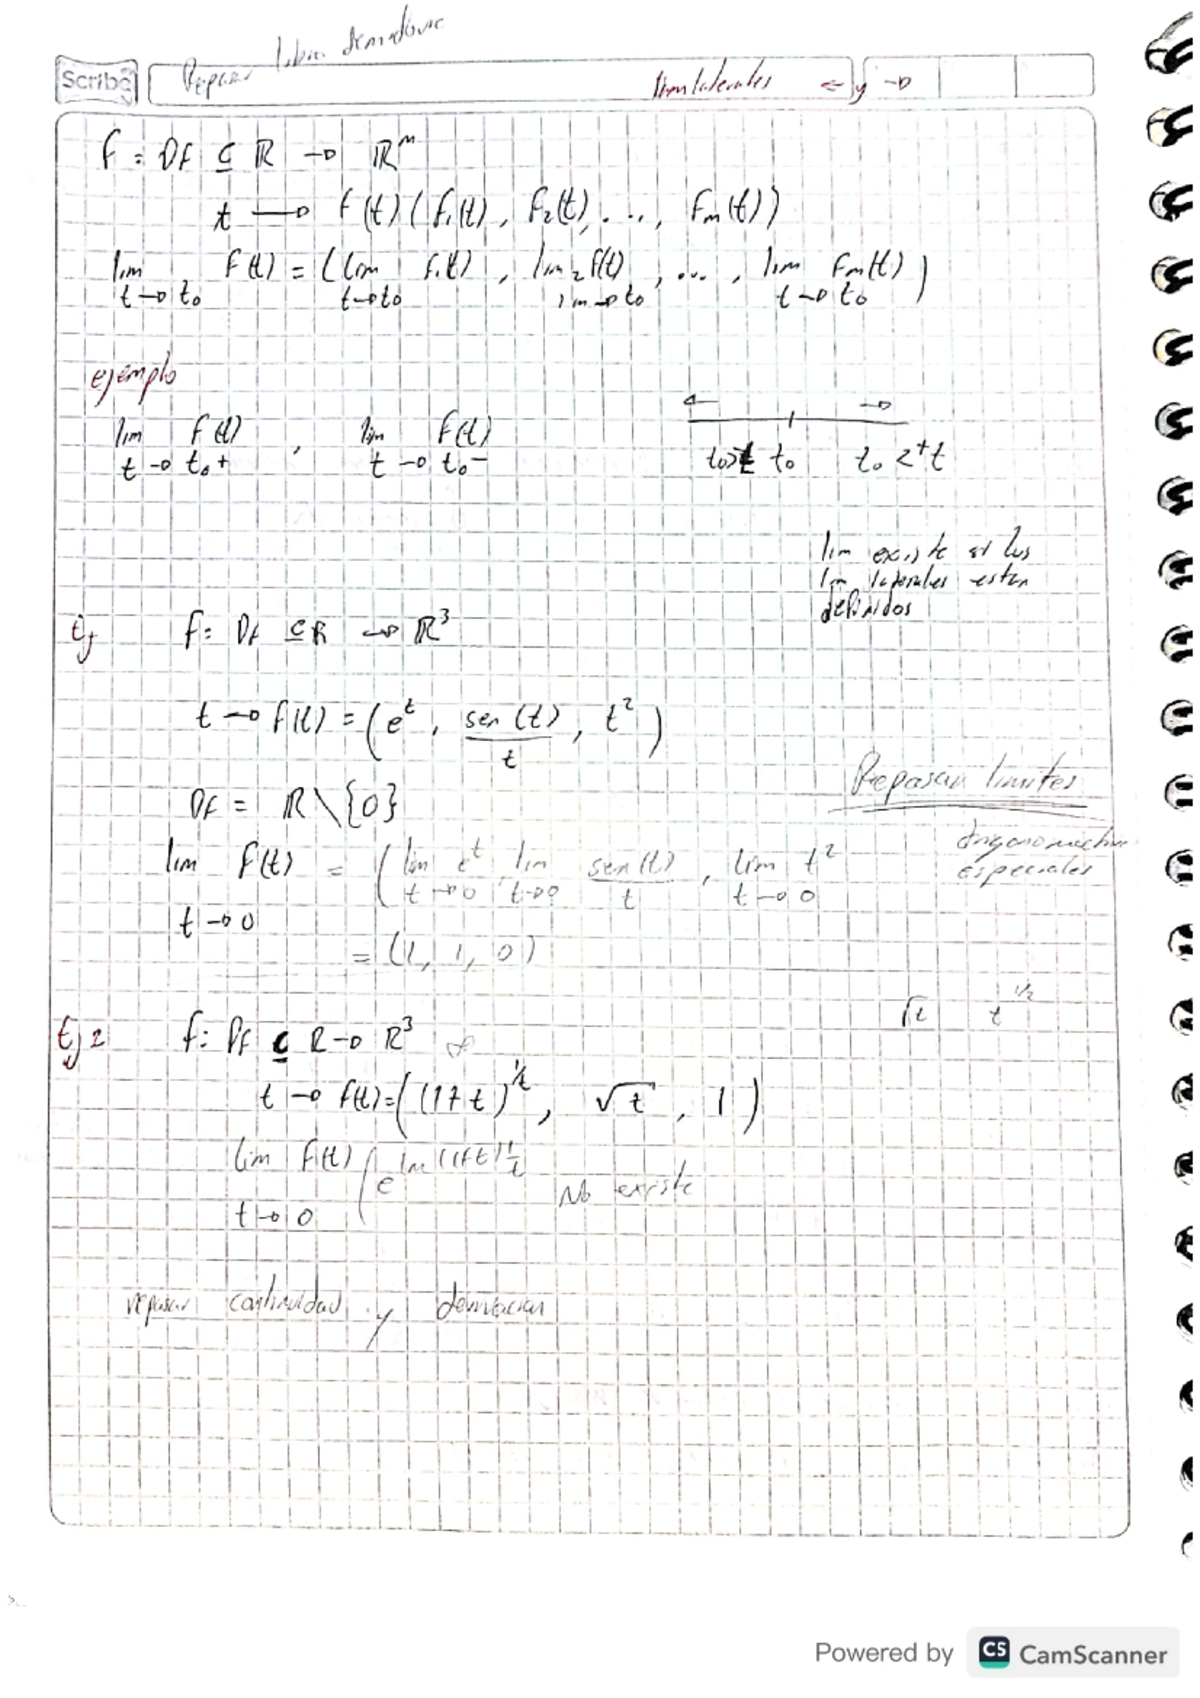 Repasar libro demidovic
Scribe
lim laterales ← y →
f: Df ⊆ ℝ → ℝᵐ
t → f(t) (f₁(t), f₂(t), ..., fm(t))
lim t→t₀ f(t) = (lim t→t₀ f₁(t), lim₂ f(t) →t₀, ..., lim t→t₀ fm(t))
ejemplo
lim t→t₀+ f(t), lim t→t₀− f(t)
← →
t₀ t₀
lim existe si los
lim laterales estan
definidos
Ej f: Df ⊆ ℝ → ℝ³
t → f(t) = (eᵗ, sen(t)/t, t²)
Repasar limites
Df = ℝ \ {0}
trigonometricos
especiales
lim t→0 f(t) = (lim t→0 eᵗ, lim t→0 sen(t)/t, lim t→0 t²)
= (1, 1, 0)
√t t^1/2
Ej 2 f: Df ⊆ ℝ → ℝ³
t → f(t) = ((1+t)^1/t, √t, 1)
lim t→0 f(t) (e^ln((1+t))1/t No existe
repasar continuidad y derivacion
Powered by CS CamScanner